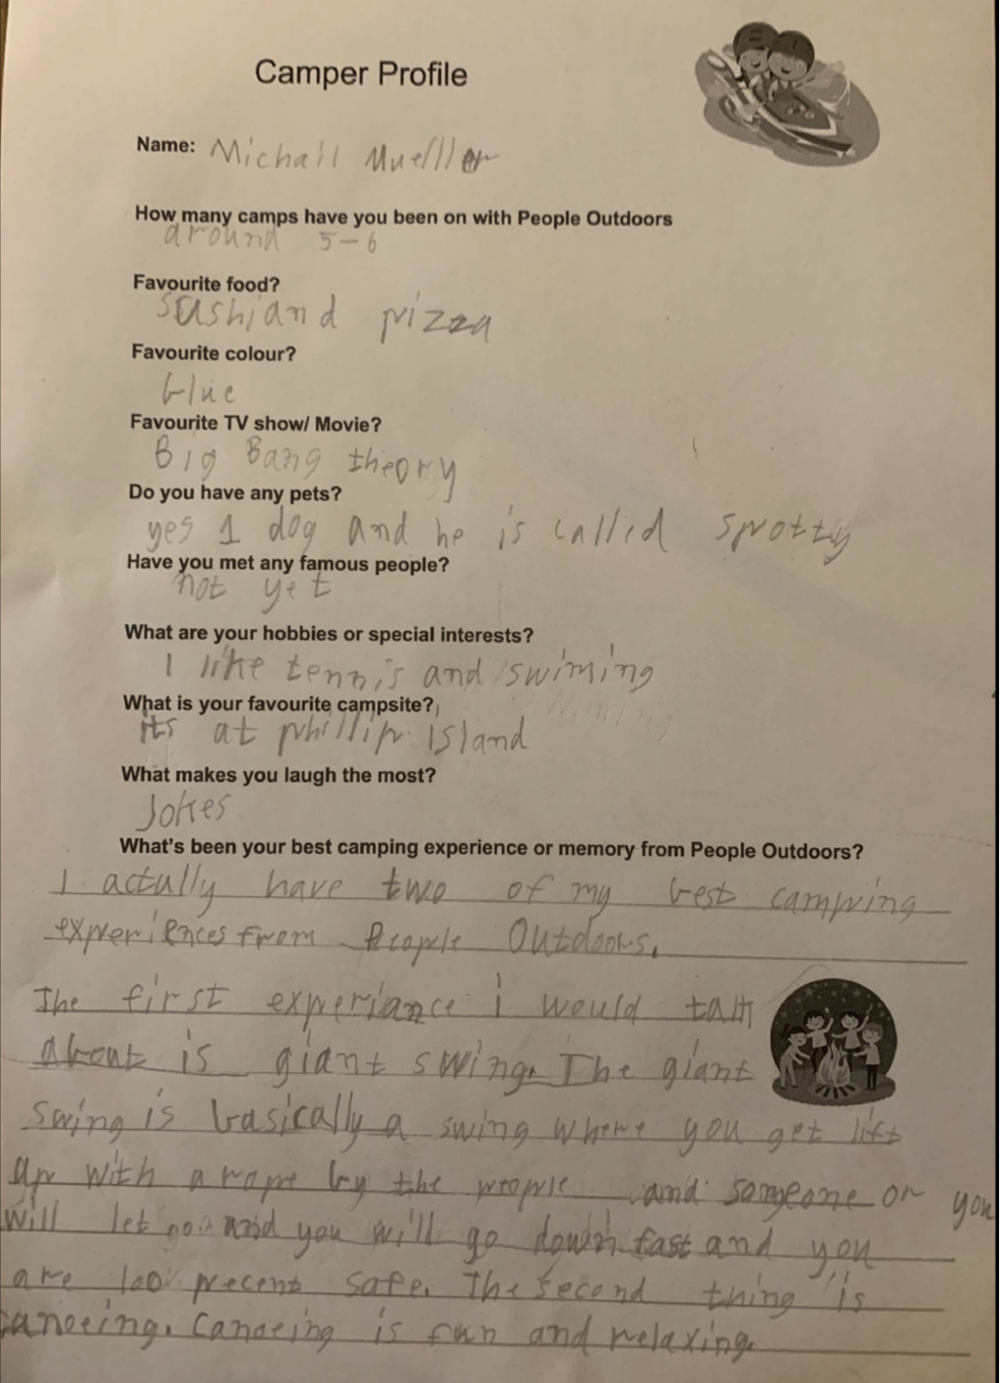 Camper Profile
Name: Michail Muelller
How many camps have you been on with People Outdoors
around 5-6
Favourite food?
sushi and pizza
Favourite colour?
blue
Favourite TV show/ Movie?
Big Bang theory
Do you have any pets?
yes 1 dog and he is called spotty
Have you met any famous people?
not yet
What are your hobbies or special interests?
I like tennis and swiming
What is your favourite campsite?
its at phillip Island
What makes you laugh the most?
Jokes
What's been your best camping experience or memory from People Outdoors?
I actully have two of my best camping
experiences from People Outdoors.
The first experiance i would talk
about is giant swing. The giant
swing is basically a swing where you get lift
up with a rope by the people and someone or you
will let go and you will go down fast and you
are 100% precent safe. The second thing is
canoeing. Canoeing is fun and relaxing.